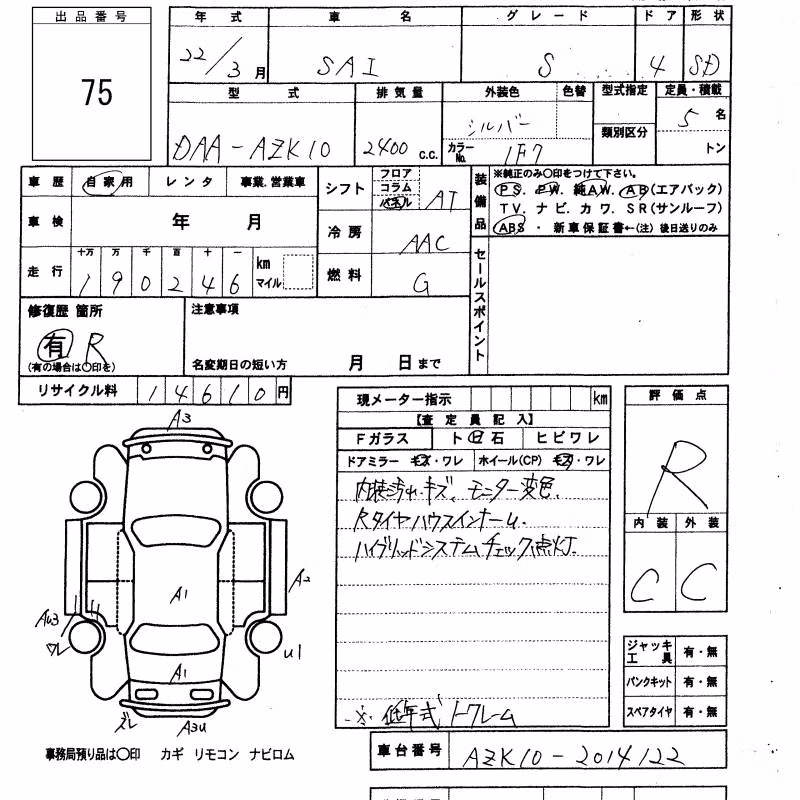 出品番号
75
年式 車名 グレード ドア 形状
22/3月 SAI S 4 SD
型式 排気量 外装色 色替 型式指定 定員・積載
DAA-AZK10 2400 c.c. シルバー カラーNo. 1F7 類別区分 5名 トン
車歴 自家用 レンタ 事業.営業車
車検 年 月
走行 十万 万 千 百 十 一
190246 km マイル
シフト フロア コラム パネル AT
冷房 AAC
燃料 G
装備品
※純正のみ○印をつけて下さい。
P S. P W. 純A W. A B(エアバック)
T V. ナ ビ. カ ワ. S R(サンルーフ)
ABS ・ 新車保証書←(注) 後日送りのみ
セールスポイント
修復歴 箇所
有 R
(有の場合は○印を)
注意事項
名変期日の短い方 月 日まで
リサイクル料 14610円
現メーター指示 km
【査定員記入】
Fガラス ト ビ 石 ヒビワレ
ドアミラー キズ・ワレ ホイール(CP) キズ・ワレ
内装汚れ・キズ、モニター変色.
Rタイヤハウスインナーム.
ハイブリッドシステムチェック点灯.
※. 低年式 トワレーム
評価点
R
内装 外装
C C
ジャッキ工具 有・無
パンクキット 有・無
スペアタイヤ 有・無
A3
A1
A2
AU3
ワレ
U1
A1
ズレ
A3U
事務局預り品は○印 カギ リモコン ナビロム
車台番号 AZK10-2014122